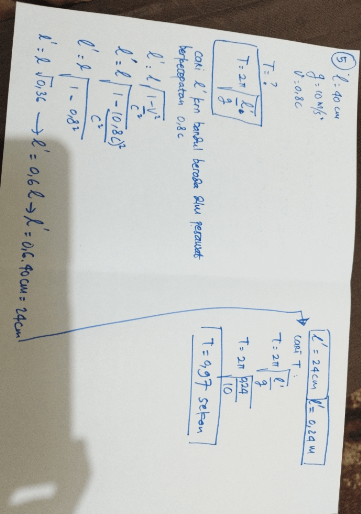 5 l = 40 cm
g = 10 m/s²
v = 0,8c
T = ?
T = 2π √(l'/g)
cari l' krn bandul berada dlm pesawat
berkecepatan 0,8c
l' = l √(1 - v²/c²)
l' = l √(1 - (0,8c)²/c²)
l' = l √(1 - 0,8²)
l' = l √0,36 → l' = 0,6 l → l' = 0,6 . 40 cm = 24 cm
l' = 24 cm l' = 0,24 m
cari T :
T = 2π √(l'/g)
T = 2π √(0,24/10)
T = 0,97 sekon